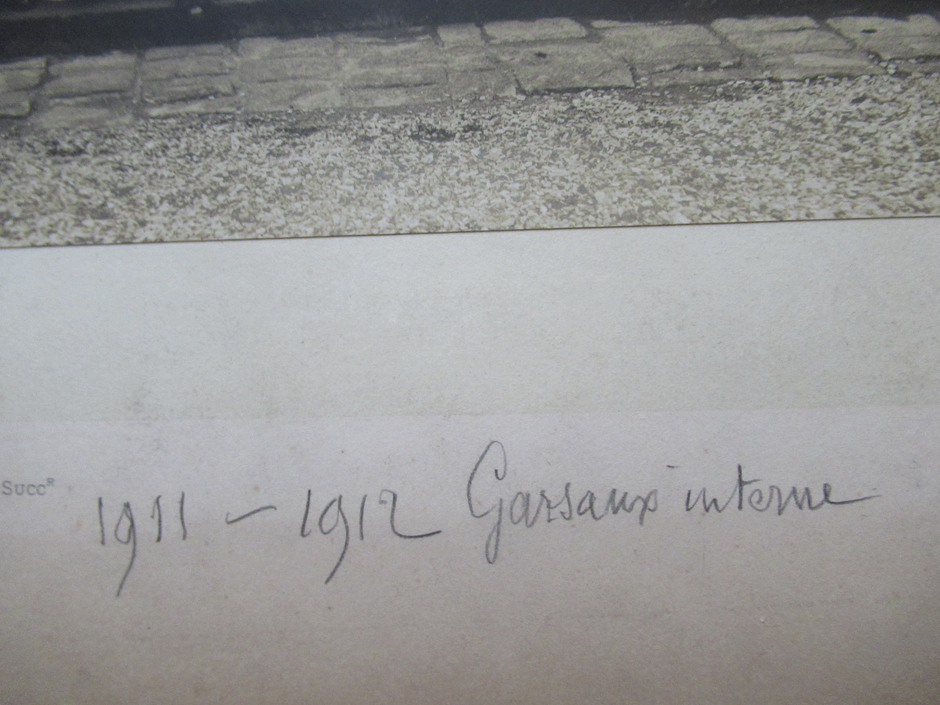 Succᴿ
1911 - 1912 Garsaux interne